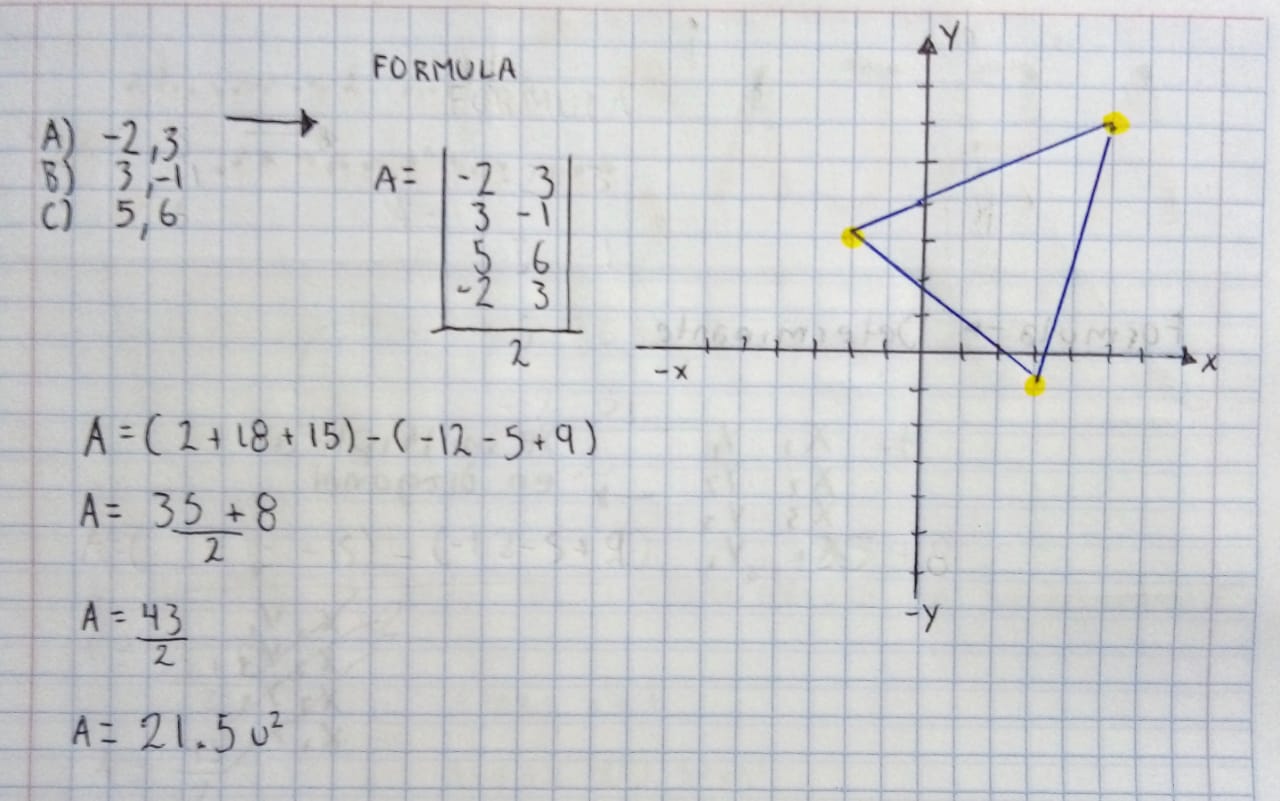 FORMULA
A) -2,3
B) 3,-1
C) 5,6
A= | -2 3 |
| 3 -1 |
| 5 6 |
| -2 3 |
2
Y
X
-X
-Y
A = (2+18+15)-(-12-5+9)
A= 35 +8
2
A = 43
2
A= 21.5 u²